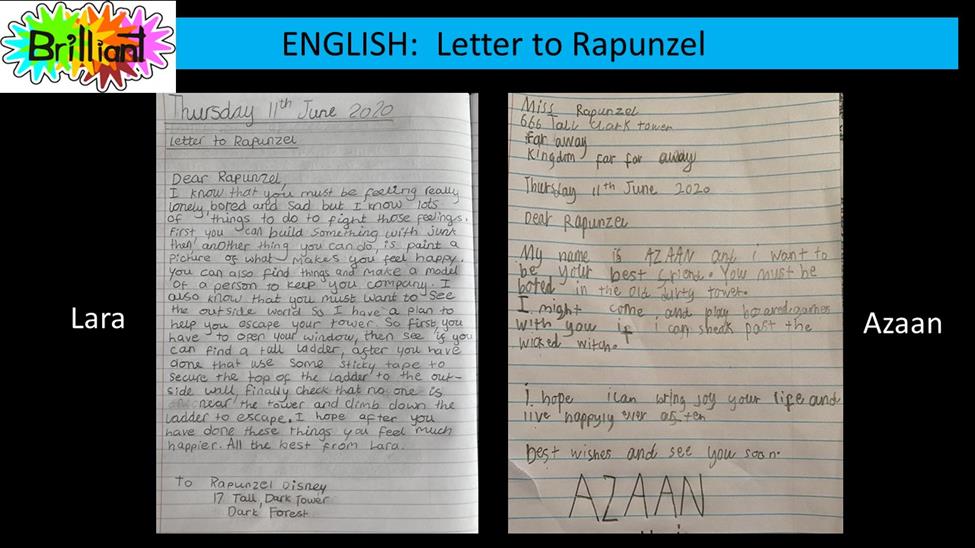 Brilliant
ENGLISH: Letter to Rapunzel
Lara
Thursday 11th June 2020
Letter to Rapunzel
Dear Rapunzel,
I know that you must be feeling really
lonely, bored and sad but I know lots
of things to do to fight those feelings.
First, you can build something with junk
then another thing you can do is paint a
picture of what makes you feel happy.
You can also find things and make a model
of a person to keep you company. I
also know that you must want to see
the outside world so I have a plan to
help you escape your tower. So first you
have to open your window, then see if you
can find a tall ladder, after you have
done that use some sticky tape to
secure the top of the ladder to the out-
side wall, finally check that no one is
near the tower and climb down the
ladder to escape. I hope after you
have done these things you feel much
happier. All the best from Lara.
To Rapunzel Disney
17 Tall, Dark Tower
Dark Forest
Miss Rapunzel
666 Tall dark tower
far away
Kingdom far far away
Thursday 11th June 2020
Dear Rapunzel
My name is AZAAN and i want to
be your best friend. You must be
bored in the old durty tower.
I might come and play boared games
with you if i can sneak past the
wicked witch.
i hope ican wring joy your life and
live happyly ever aften
best wishes and see you soon.
AZAAN
Azaan